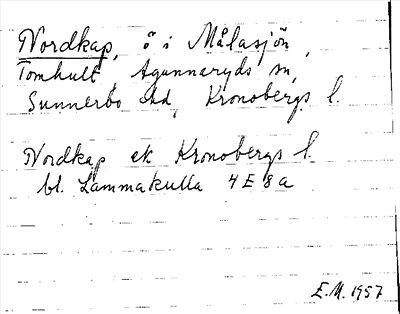 Nordkap, ö i Målasjön,
Tomhult, Agunnaryds sn,
Sunnerbo hd, Kronobergs l.
Nordkap ek Kronobergs l.
bl. Lammakulla 4E8a
E.M. 1957